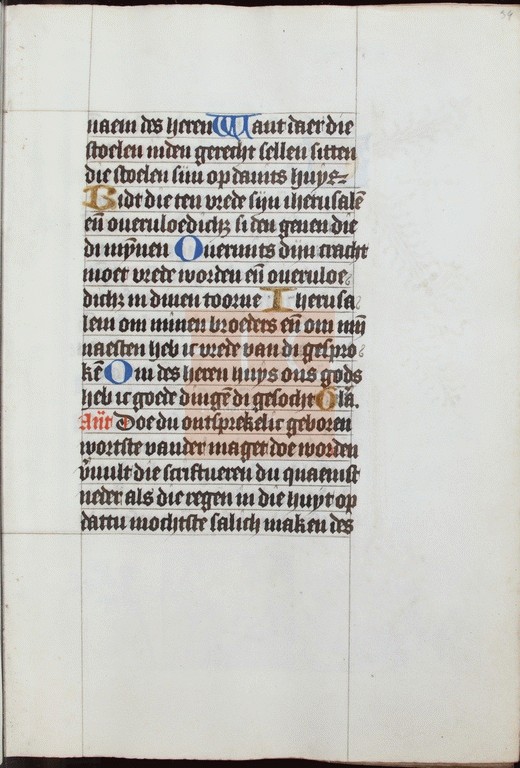 59
naem des heren Want daer die
stoelen inden gerecht sellen sitten
die stoelen sijn op dauits huys
Bidt die ten vrede sijn iherusalē
eñ oueruloedicheit si den genen die
di mynnen Ouermits dijn cracht
moet vrede worden eñ oueruloe
dicheit in dinen toorne Iherusa
lem om minen broeders eñ om mijn
naesten heb ic vrede van di gespro
kē Om des heren huys ons gods
heb ic goede dingē di gesocht Glā.
Añt Doe du ontsprekelic geboren
wortste vander maget doe worden
vuult die scriftueren du quaemst
neder als die regen in die huyt op
dattu mochtste salich maken des